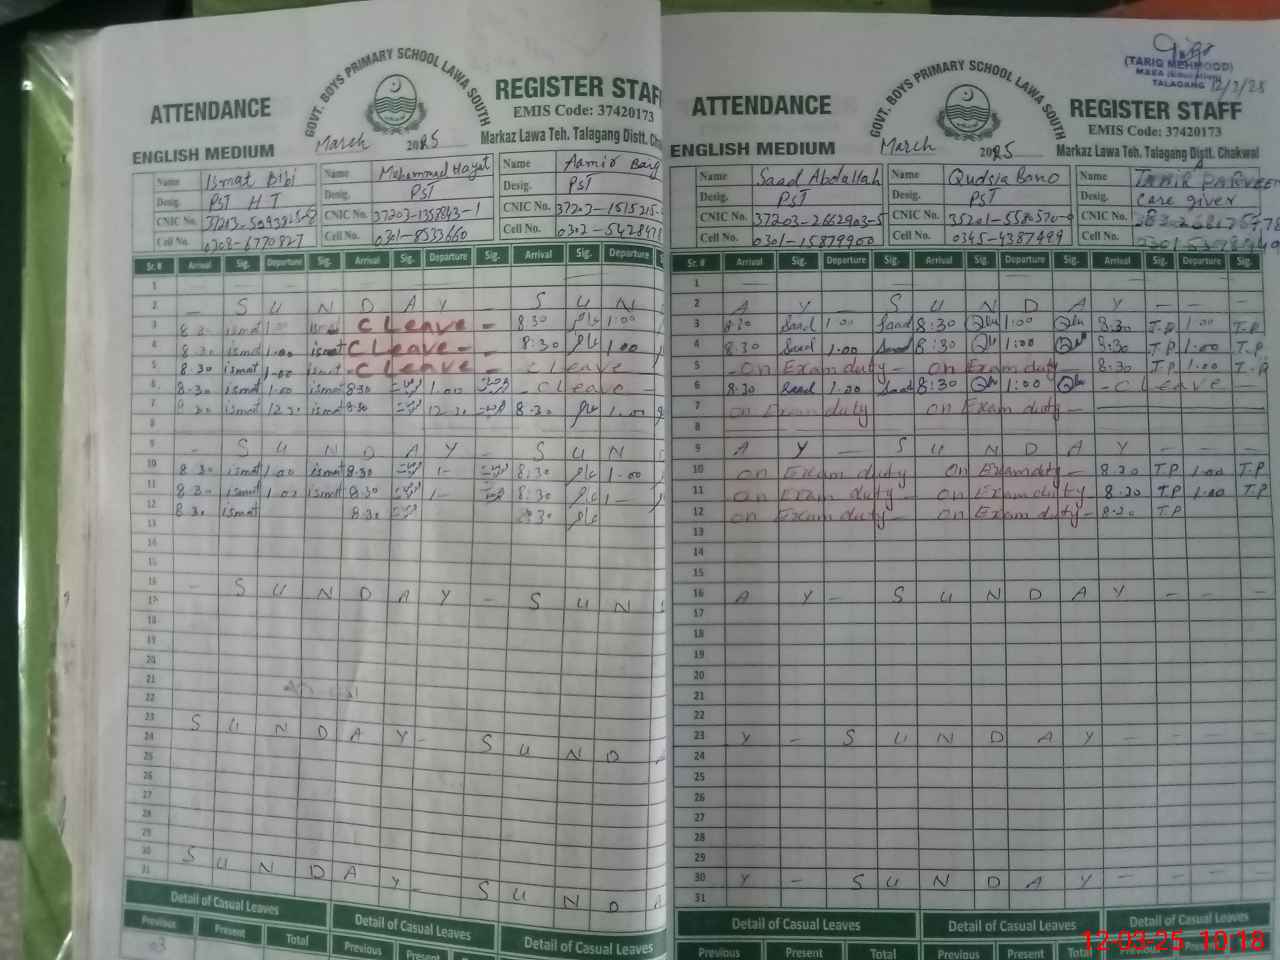 ATTENDANCE
GOVT. BOYS PRIMARY SCHOOL LAWA SOUTH
REGISTER STAFF
EMIS Code: 37420173
ENGLISH MEDIUM
March 2025
Markaz Lawa Teh. Talagang Distt. Chak
Name Ismat Bibi Name Muhammad Hayat Name Aamir
Desig. PST HT Desig. PST Desig. PST
CNIC No. CNIC No. 37203-1358843-1 CNIC No. 37203-1515215-
Cell No. 0308-6770827 Cell No. 0301-8533660 Cell No. 0302-542847
Sr. # Arrival Sig. Departure Sig. Arrival Sig. Departure Sig. Arrival Sig. Departure S
1
2 - S U N D A Y S U N
3 8.30 ismat 1.00 ismat C Leave - 8:30 1:00
4 8.30 ismat 1.00 ismat C Leave - - 8:30 1.00
5 8.30 ismat 1.00 ismat - C Leave - C Leave
6 8.30 ismat 1.00 ismat 8.30 1.00 - C Leave -
7 8.30 ismat 12.30 ismat 8.30 12.30 8.30 1.00
8
9 - S U N D A Y S U N
10 8.30 ismat 1.00 ismat 8.30 1- 8:30 1.00
11 8.30 ismat 1.00 ismat 8.30 1- 8:30 1-
12 8.30 ismat 8.30 8.30
13
14
15
16 - S U N D A Y - S U N
17
18
19
20
21
22
23 S U N D A Y - S U N D A
24
25
26
27
28
29
30 S U N D A Y - S U N D A
31
Detail of Casual Leaves Detail of Casual Leaves Detail of Casual Leaves
Previous Present Total Previous Present
03
(TARIQ MEHMOOD)
TALAGANG 12/3/25
ATTENDANCE
GOVT. BOYS PRIMARY SCHOOL LAWA SOUTH
REGISTER STAFF
EMIS Code: 37420173
ENGLISH MEDIUM
March 2025
Markaz Lawa Teh. Talagang Distt. Chakwal
Name Saad Abdallah Name Qudsia Bano Name TAHIR PARVEEN
Desig. PST Desig. PST Desig. Care giver
CNIC No. 37203-2662903-5 CNIC No. 35201-5580570- CNIC No.
Cell No. 0301-15879900 Cell No. 0345-4387499 Cell No.
Sr. # Arrival Sig. Departure Sig. Arrival Sig. Departure Sig. Arrival Sig. Departure Sig.
1
2 A Y - S U N D A Y - - -
3 8:30 Saad 1.00 Saad 8:30 1:00 8:30 T.P 1.00 T.P
4 8:30 Saad 1.00 Saad 8:30 1:00 8:30 T.P 1.00 T.P
5 - on Exam duty - on Exam duty - 8:30 T.P 1.00 T.P
6 8:30 Saad 1.00 Saad 8:30 1:00 - C Leave -
7 on Exam duty on Exam duty -
8
9 A Y - S U N D A Y - - -
10 on Exam duty - on Exam duty - 8.30 T.P 1.00 T.P
11 on Exam duty - on Exam duty - 8.30 T.P 1.00 T.P
12 on Exam duty - on Exam duty - 8.30 T.P
13
14
15
16 A Y - S U N D A Y - - -
17
18
19
20
21
22
23 Y - S U N D A Y - - - -
24
25
26
27
28
29
30 Y - S U N D A Y - - - -
31
Detail of Casual Leaves Detail of Casual Leaves Detail of Casual Leaves
Previous Present Total Previous Present Total Previous Present
12-03-25 10:18